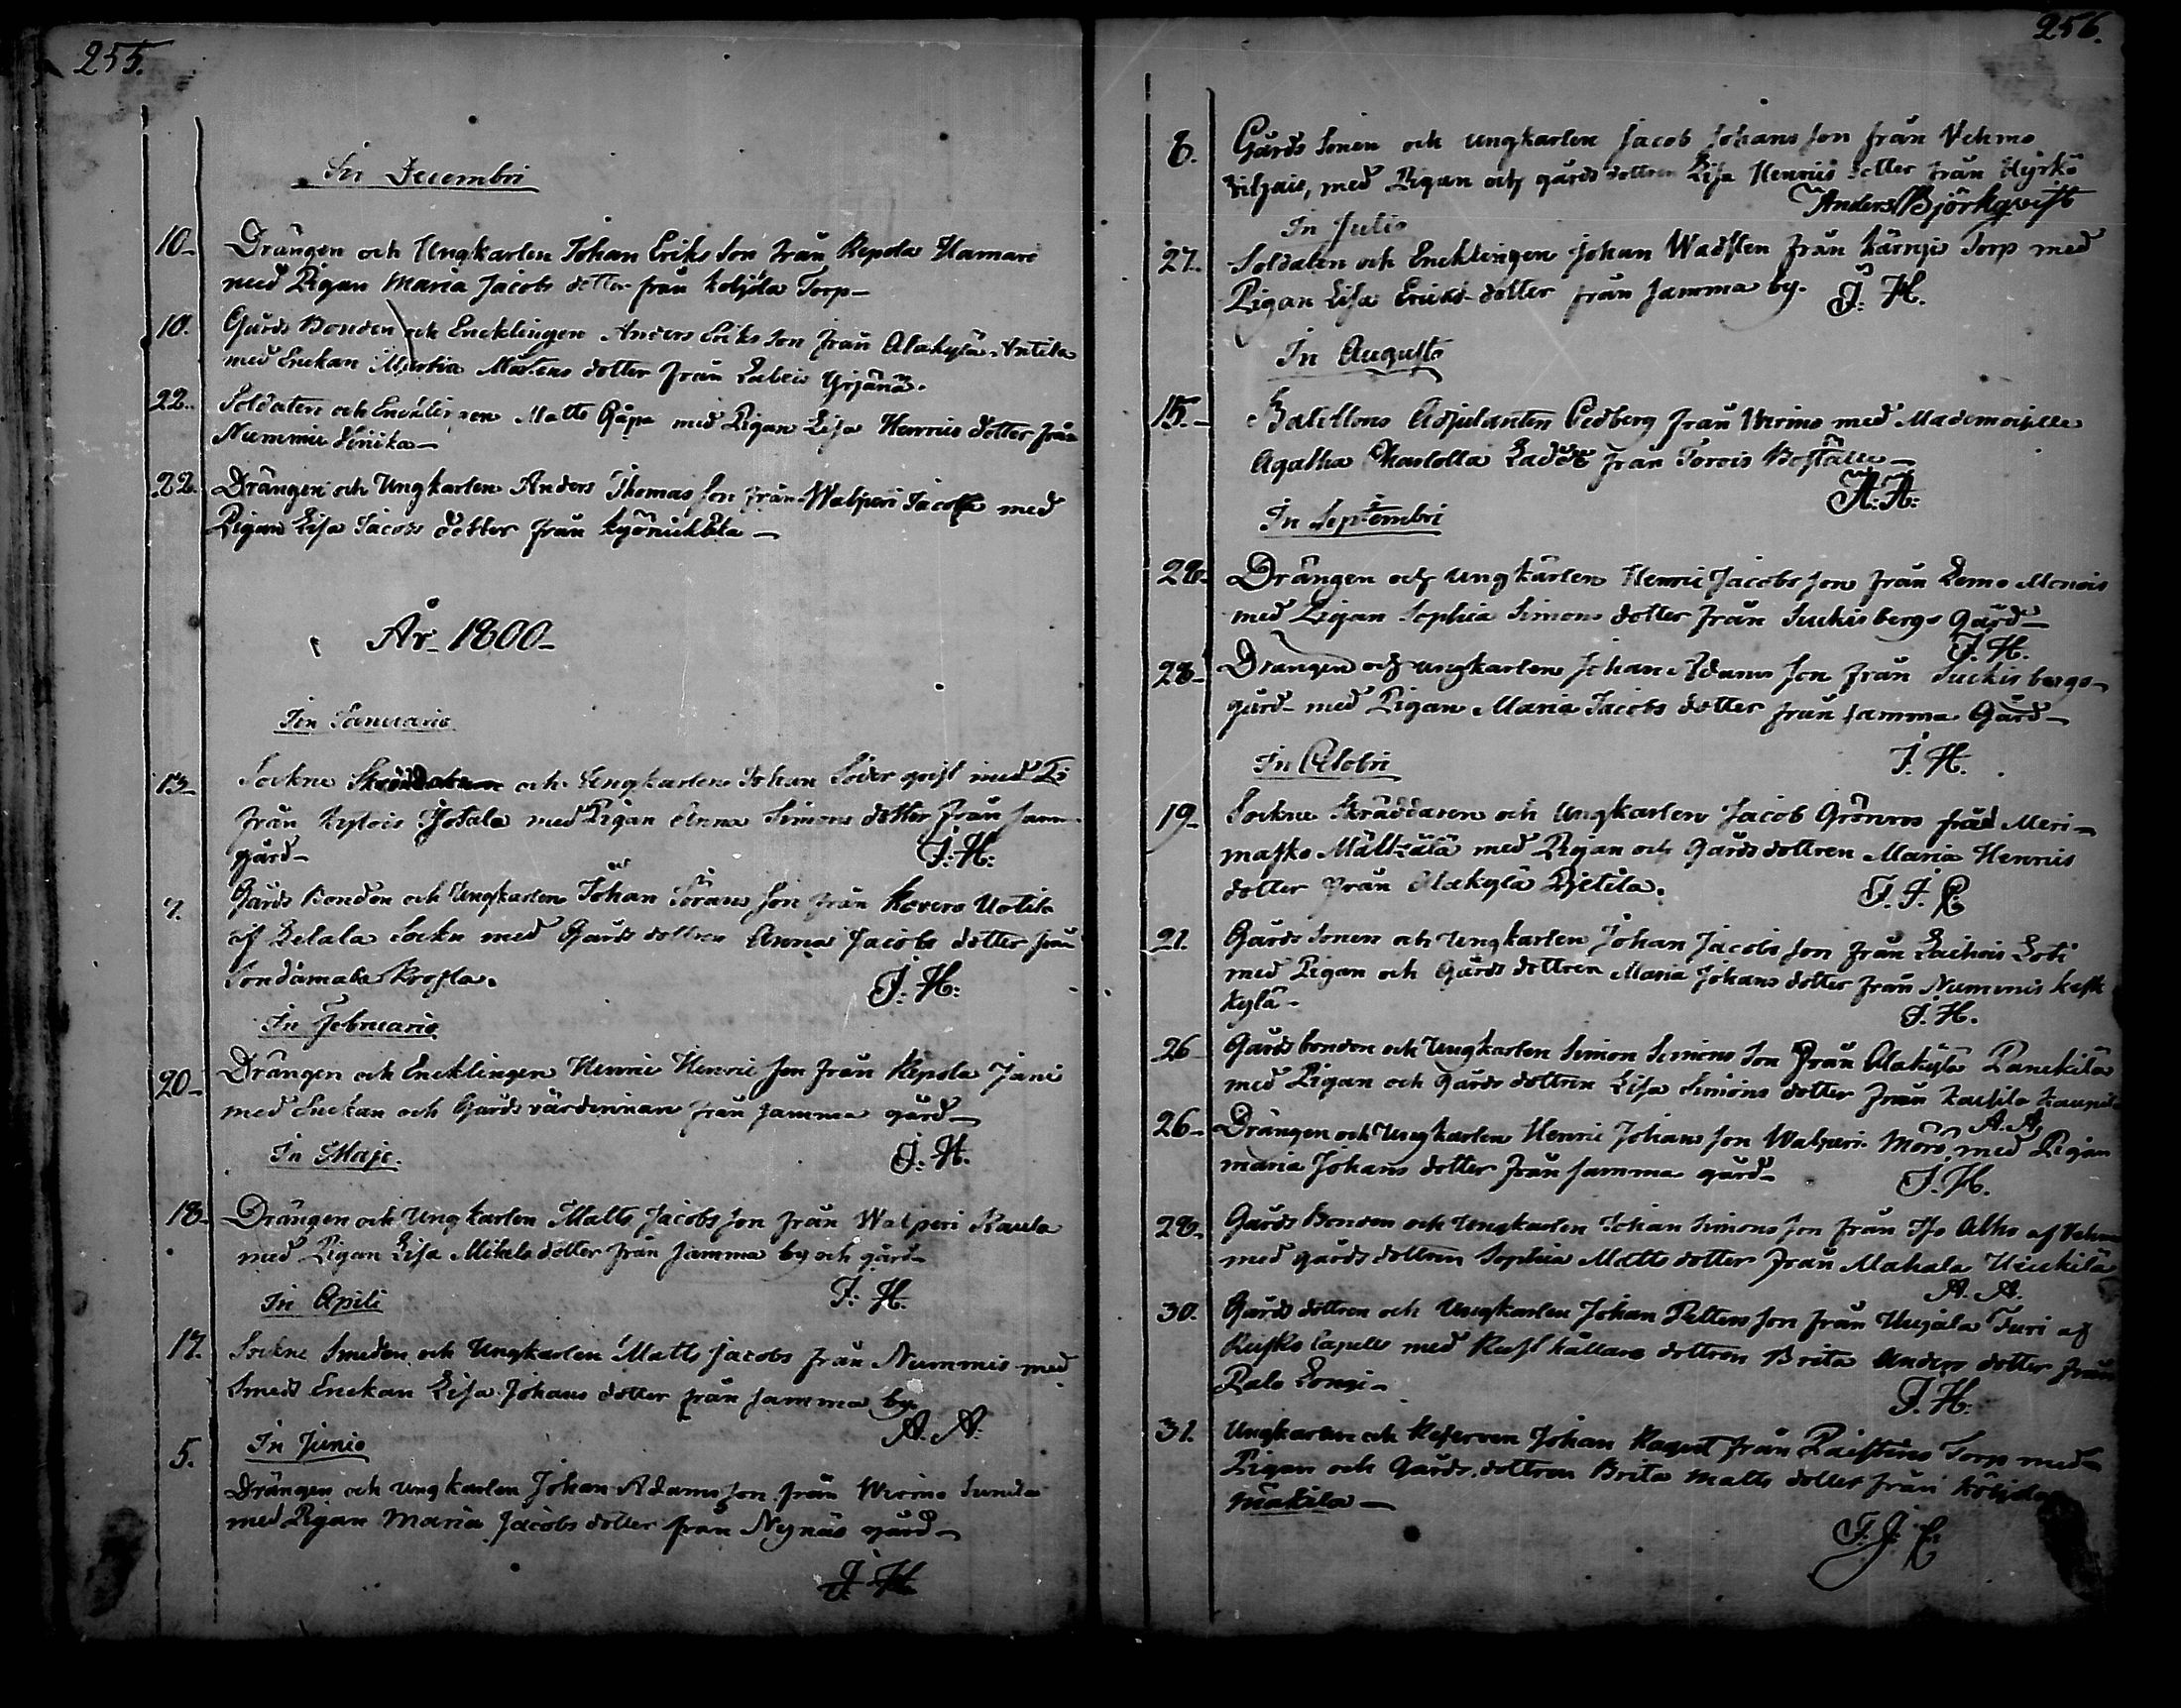 255.
In Decembri
10. Drängen och Ungkarlen Johan Eriks Son från Repola Hamari
med Pigan Maria Jacobs dotter från Koljola Torp
10. Gårds Bonden och Encklingen Anders Eriks Son från Alakylä Antila
med Enckan Martens dotter från Yrjänä.
22. Soldaten och Encklingen Matts med Pigan Lisa Henrics dotter från
Nummis
22. Drängen och Ungkarlen Anders Thomas Son från Walperi Jacola med
Pigan Lisa Jacobs dotter från
År 1800
In Januario
13. Sockne och Ungkarlen Johan Söderqvist med Pi
från med Pigan Anna Simons dotter från sam
gård
J: H:
7. Gårds Bonden och Ungkarlen Johan Son från Kovero Uotila
af Letala Sockn med Gårds dottren Anna Jacobs dotter från
J: H:
In Februario
20 Drängen och Encklingen Henric Henric Son från Repola Jani
med Enckan och Gårds värdinnan från samma gård
J: H.
In Majo.
18 Drängen och Ungkarlen Matts Jacobs Son från Walperi Kaula
med Pigan Lisa Mikels dotter från samma by och gård
J: H.
In Apili
17. Sockne Smeden och Ungkarlen Matts Jacobs från Nummis med
Smeds Enckan Lisa Johans dotter från samma by.
A. A:
5. In Junio
Drängen och Ungkarlen Johan Adams Son från Wirmo
med Pigan Maria Jacobs dotter från Nynäs gård
J. H.
256.
8. Gårds Sonen och Ungkarlen Jacob Johans Son från Vehmo
med Pigan och gårds dottren Lisa Henrics dotter från Hyrkö
Anders Björkqvist
In Julio
27. Soldaten och Encklingen Johan Wadsten från Torp med
Pigan Lisa Erics dotter från samma by. J. H.
In Augusto
15. Batellons Adjutanten Cedberg från Wirmo med Mademoiselle
Agatha Charlotta från Torois Boställe
A. A:
In Septembri
28 Drängen och Ungkarlen Henric Jacobs Son från Lemo Monois
med Pigan Sophia Simons dotter från Suckisbergs Gård
J. H.
28 Drängen och Ungkarlen Johan Adams Son från Suckisbergs
gård med Pigan Maria Jacobs dotter från samma Gård
J. H.
In Octobri
19 Sockne Skräddaren och Ungkarlen Jacob Grönros från Meri
masko med Pigan och Gårds dottren Maria Henrics
dotter från Alakylä
21. Gårds Sonen och Ungkarlen Johan Jacobs Son från
med Pigan och Gårds dottren Maria Johans dotter från Nummis kesk
kylä
J. H.
26 Gårds bonden och Ungkarlen Simon Simons Son från Alakylä
med Pigan och Gårds dottren Lisa Simons dotter från
A. A.
26 Drängen och Ungkarlen Henric Johans Son Walperi Mörö med Pigan
Maria Johans dotter från samma gård
J. H.
28. Gårds Bonden och Ungkarlen Johan Simons Son från Iso Alho af
med gårds dottren Sophia Matts dotter från Mahala Heickilä
A. A.
30. Gårds dottren och Ungkarlen Johan Petters Son från Turi af
Rusko Capell med Rusthållare dottren Brita Anders dotter från
Palo
J. H:
31. Ungkarlen och Reserven Johan från Torp med
Pigan och Gårds dottren Brita Matts dotter från
Mäkilä